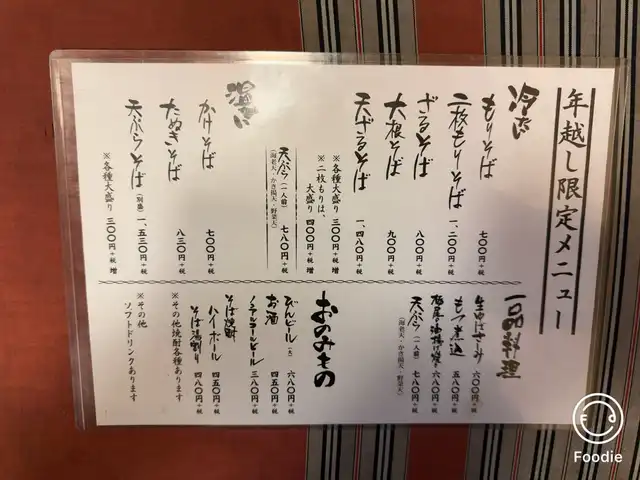 年越し限定メニュー
冷たい
もりそば 七〇〇円+税
二枚もりそば 一、二〇〇円+税
ざるそば 八〇〇円+税
大根そば 九〇〇円+税
天ざるそば 一、四八〇円+税
※各種大盛り 三〇〇円+税 増
※二枚もりは、
大盛り 四〇〇円+税 増
天ぷら(一人前) 七八〇円+税
(海老天・かき揚天・野菜天)
温かい
かけそば 七〇〇円+税
たぬきそば 八三〇円+税
天ぷらそば(別盛) 一、五三〇円+税
※各種大盛り 三〇〇円+税 増
一品料理
生ゆばさしみ 六〇〇円+税
もつ煮込 五八〇円+税
油揚げ焼き 六八〇円+税
天ぷら(一人前) 七八〇円+税
(海老天・かき揚天・野菜天)
おのみもの
びんビール(中) 六八〇円+税
お酒 四五〇円+税
ノンアルコールビール 三八〇円+税
そば焼酎
ハイボール 四五〇円+税
そば湯割り 四八〇円+税
※その他焼酎各種あります
※その他
ソフトドリンクあります
Foodie